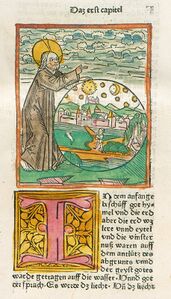 Daz erst capitel
IN dem anfange
beschůff got hy
mel vnd die erd
aber die erd wz
lere vnnd eytel
vnd die vinster
nuß waren auff
dem
vnd
der geyst gotes
warde getragen auff die wasser. Vnnd got
der sprach. Es werde dz liecht. Vnd dz liecht